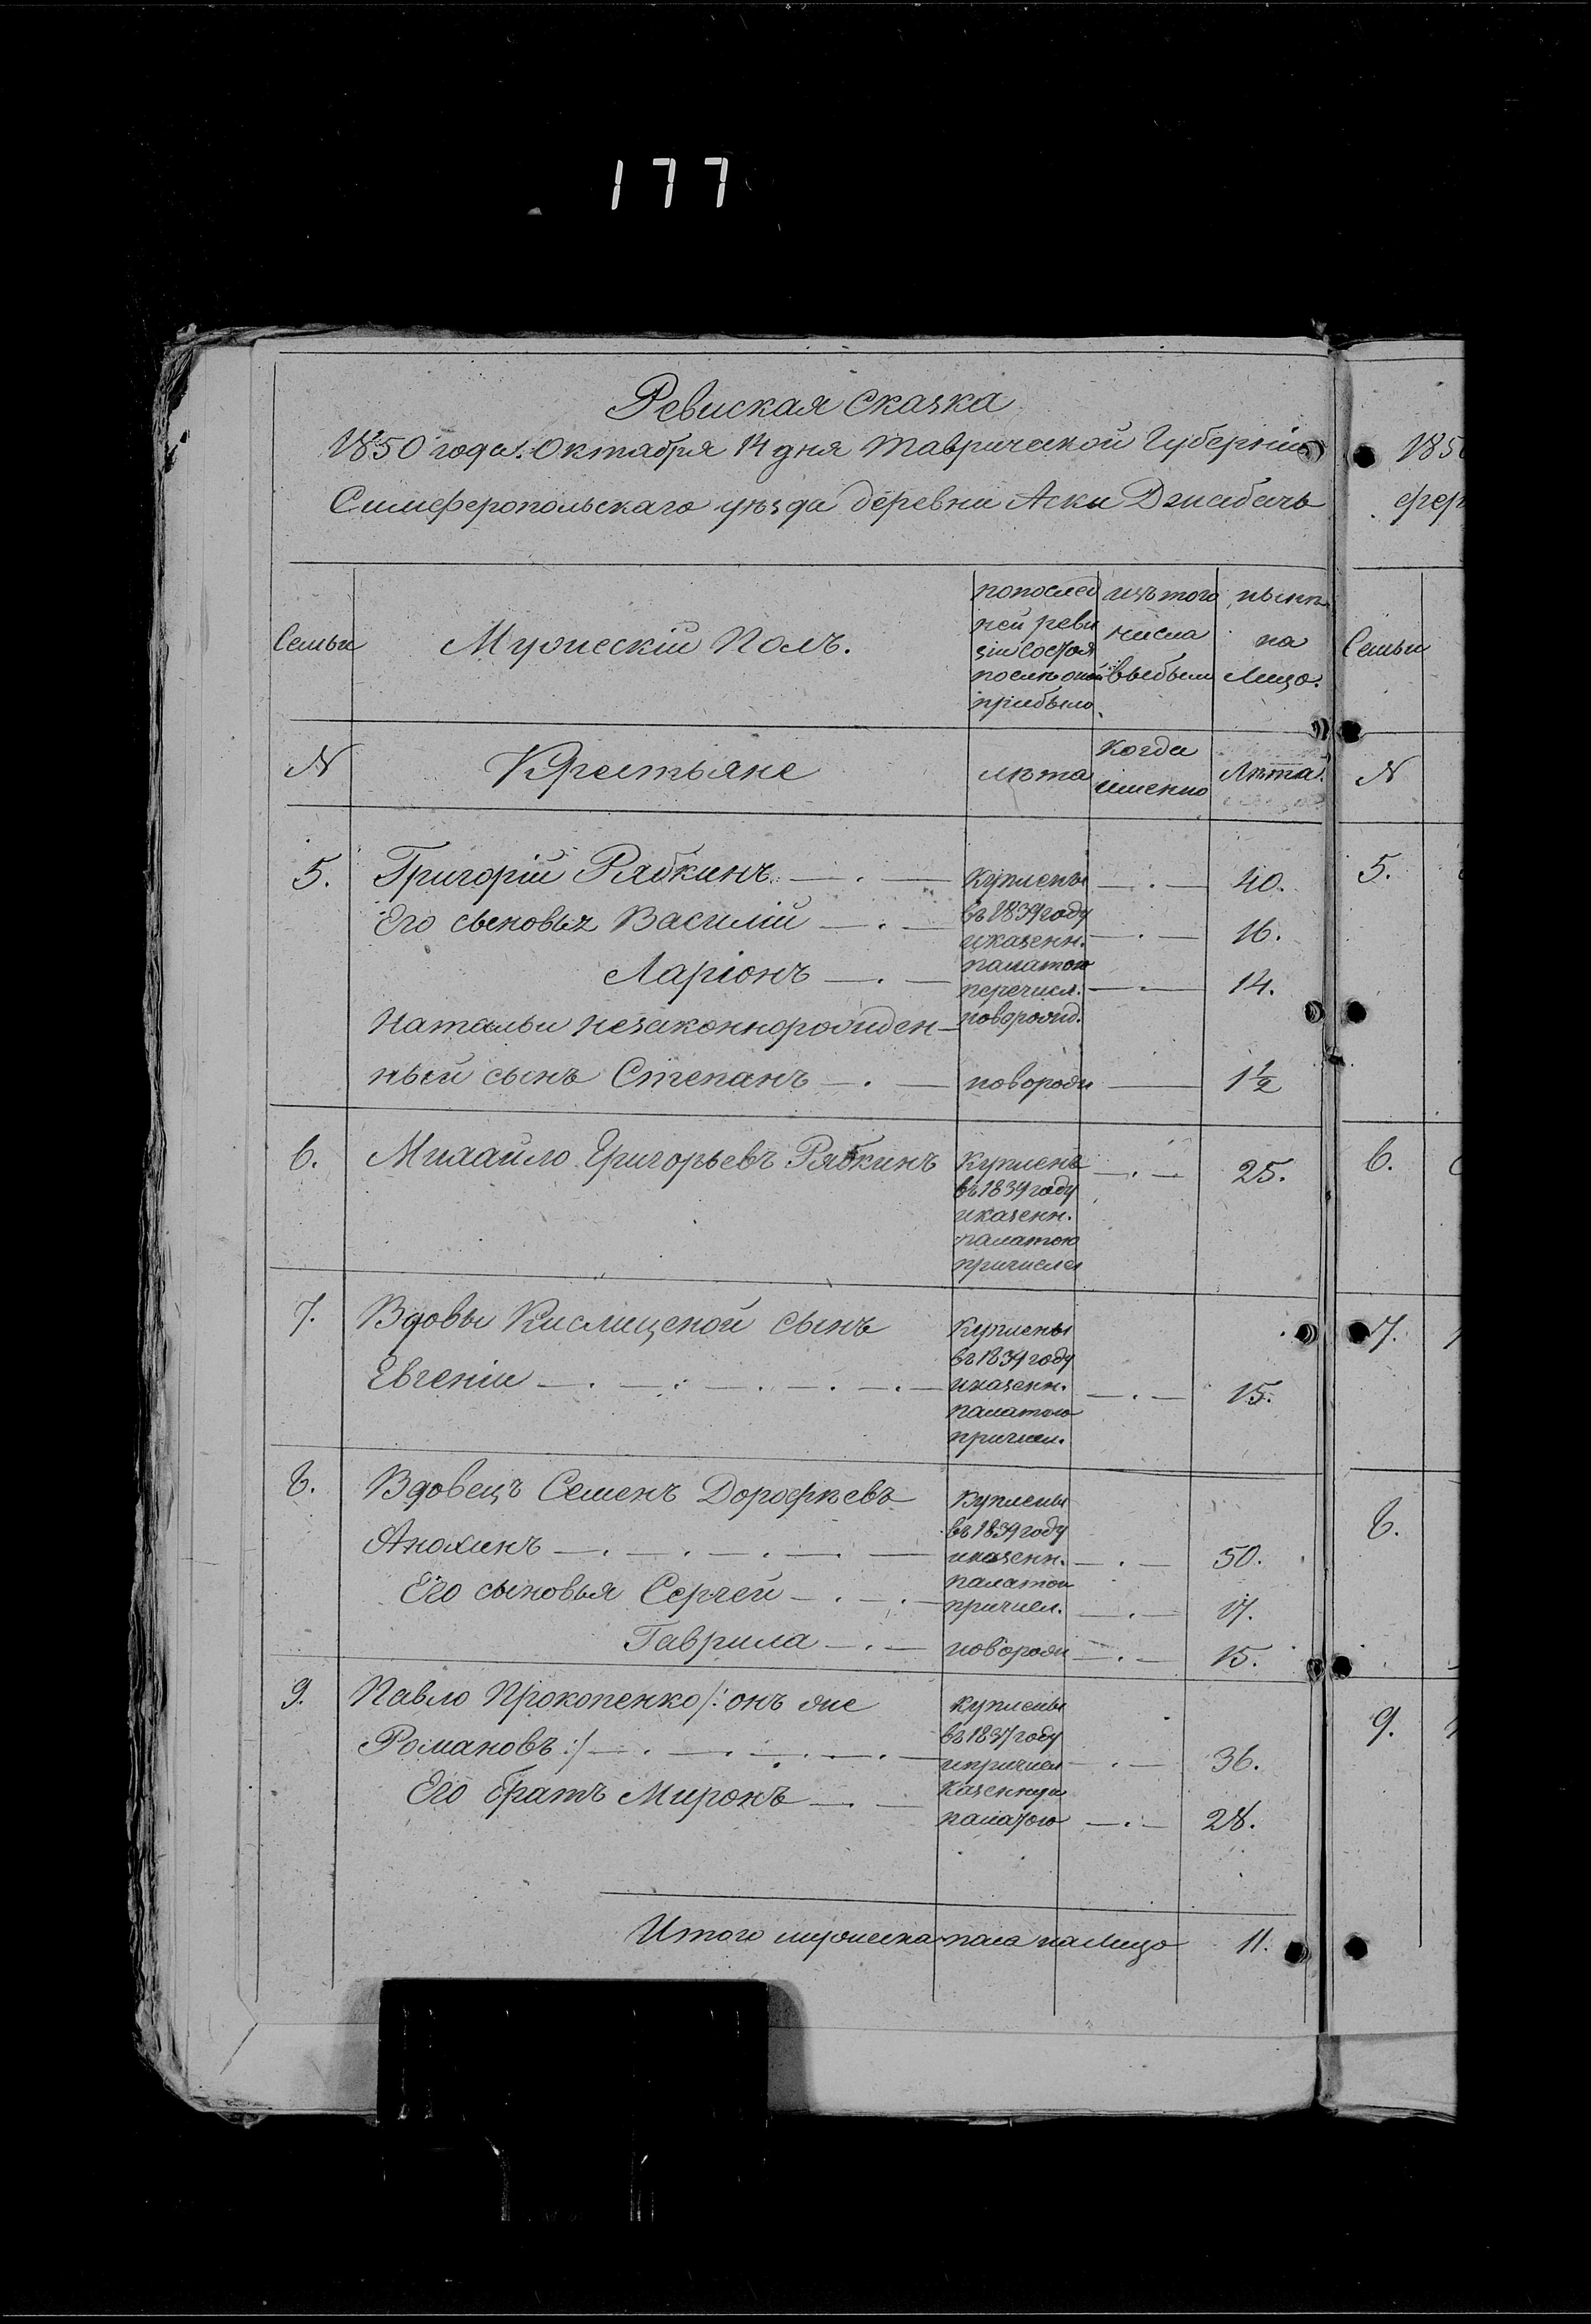 177
Ревиская сказка
1850 года. Октября 14 дня Таврической Губерніи
Симферопольскаго уѣзда деревни Аски Джабачь
Семьи
Мужескій Полъ.
попослед
ней реви
зіи состоя
послѣ оной
прибыло
изътого
числа
выбыли
нынѣ
на
Лицо.
N
Крестьяне
лѣта
Когда
именно
Лѣта
5. Григорій Рябкинъ Куплены 40.
въ 1839 году
Его сыновья Василій
иказенн. 16.
палатою
Ларіонъ перечисл. 14.
Натальи незаконнорожден- новорожд.
ный сынъ Степанъ новорожд 1½
6. Михайло Григорьевъ Рябкинъ Купленъ 25.
въ 1839 году
иказенн.
палатою
причислен
7. Вдовы Кислицкой сынъ Куплены
въ 1839 году
Евгеній иказенн. 15.
палатою
причисл.
8. Вдовецъ Семенъ Дорофѣевъ Куплены
въ 1839 году
Анохинъ иказенн. 50.
палатою
Его сыновья Сергей причисл. 17.
Гаврила новорожд 15.
9. Павло Прокопенко /: онъ же куплены
въ 1837 году
Романовъ :/ ипричисл 36.
казенную
Его братъ Миронъ палатою 28.
Итого мужеска пола на Лицо 11.
185
фер
Семьи
N
5.
6.
7.
8.
9.